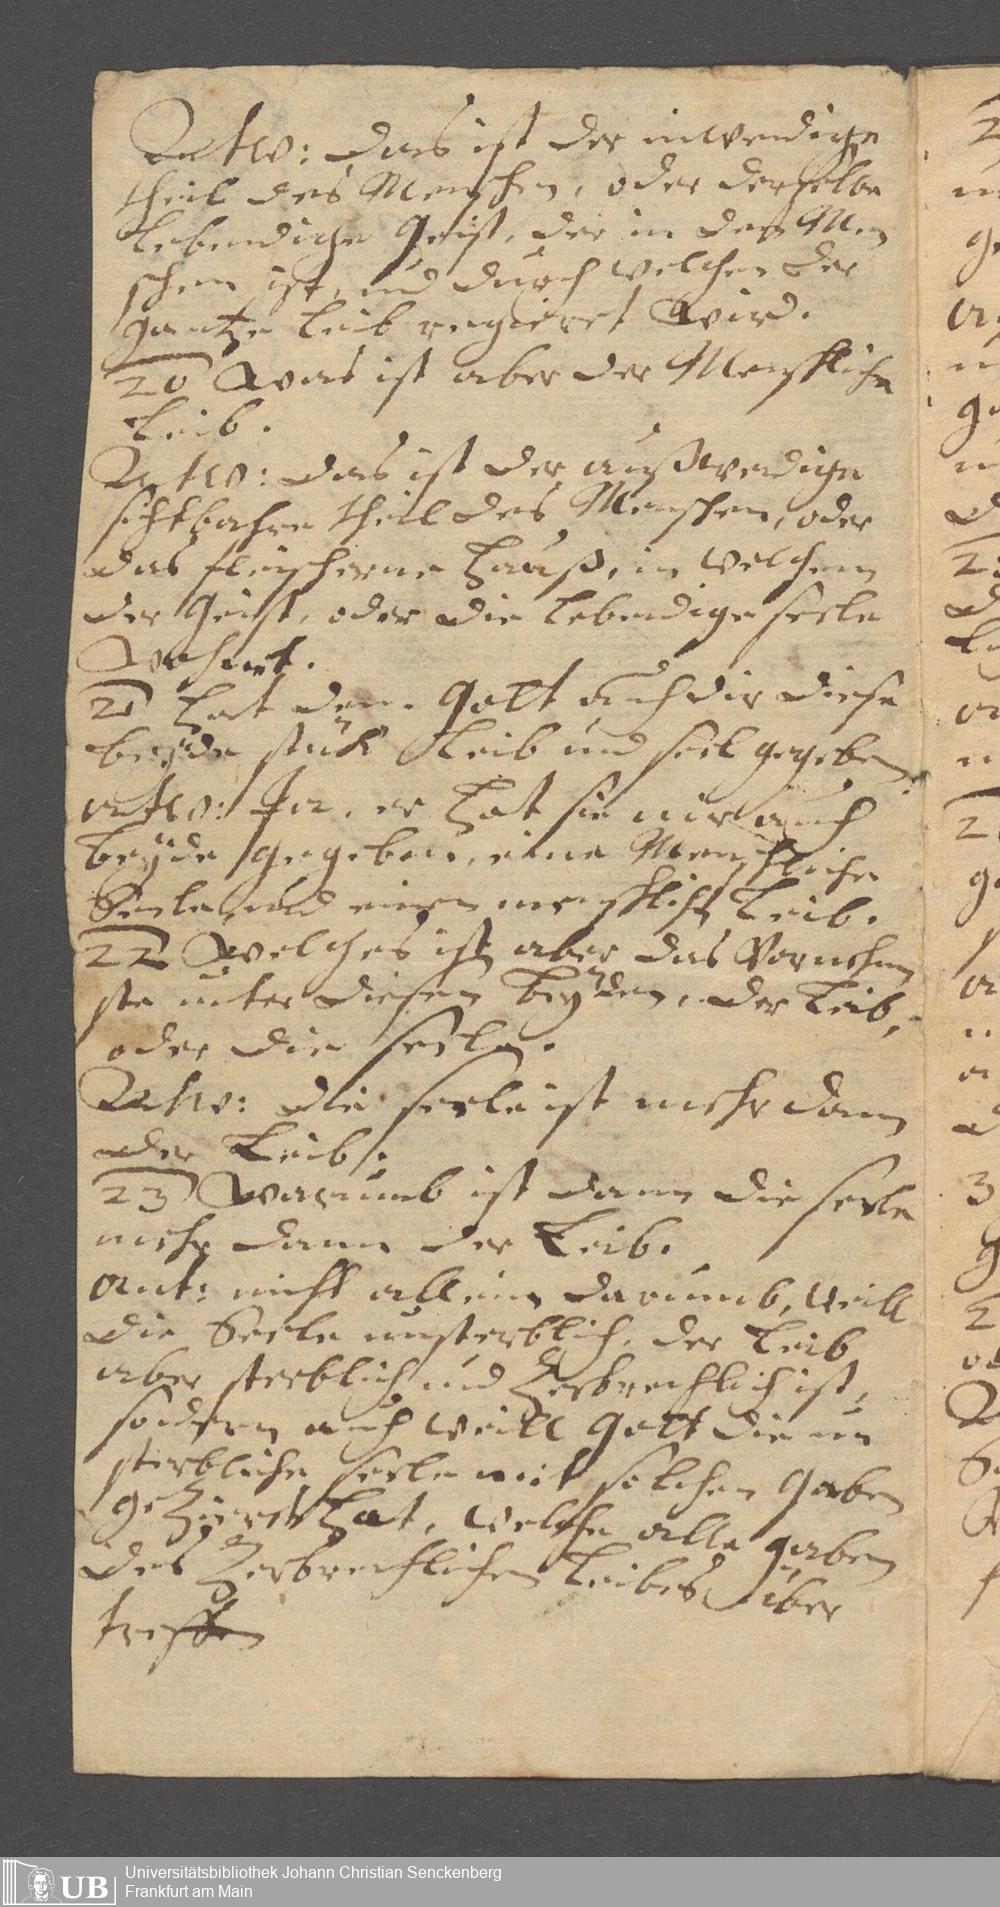 Antw: Das ist der inwendige
theil des Menschen, oder derselbe
Lebendige Geist, der in den Men
schen ist, und durch welchen der
gantze Leib regieret wird.
20 Was ist aber der Menschliche
Leib.
Antw: Das ist der außwendige
sichtbahre theil des Menschen, oder
das fleischerne Hauß, in welchem
der Geist, oder die Lebendige seele
Wohnet.
21 Hat denn Gott auch dir diese
beÿde stück Leib und seel gegeben
Antw: Ja, er hat sie mir auch
beÿde gegeben, eine Menschliche
Seele, und einen menschlichen Leib.
22 Welches ist aber das Vornehm
ste unter diesen beÿden, der Leib,
oder die seele.
Antw: die seele ist mehr dann
der Leib.
23 Warumb ist dann die seele
mehr dann der Leib.
Ant: nicht allein darumb, weill
die Seele unsterblich, der Leib
aber sterblich und Zerbrechlich ist,
sondern auch weill Gott die un
sterbliche seele mit solchen Gaben
geZieret hat, welche alle gaben
des Zerbrechlichen Leibes über
treffen
UB
Universitätsbibliothek Johann Christian Senckenberg
Frankfurt am Main